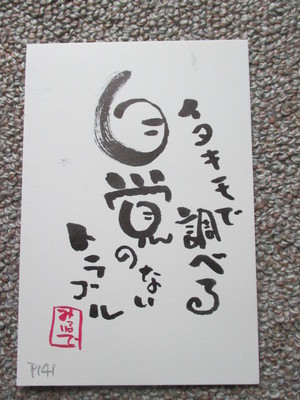 イタキモで
調べる
自覚の
ない
トラブル
みるで
P141